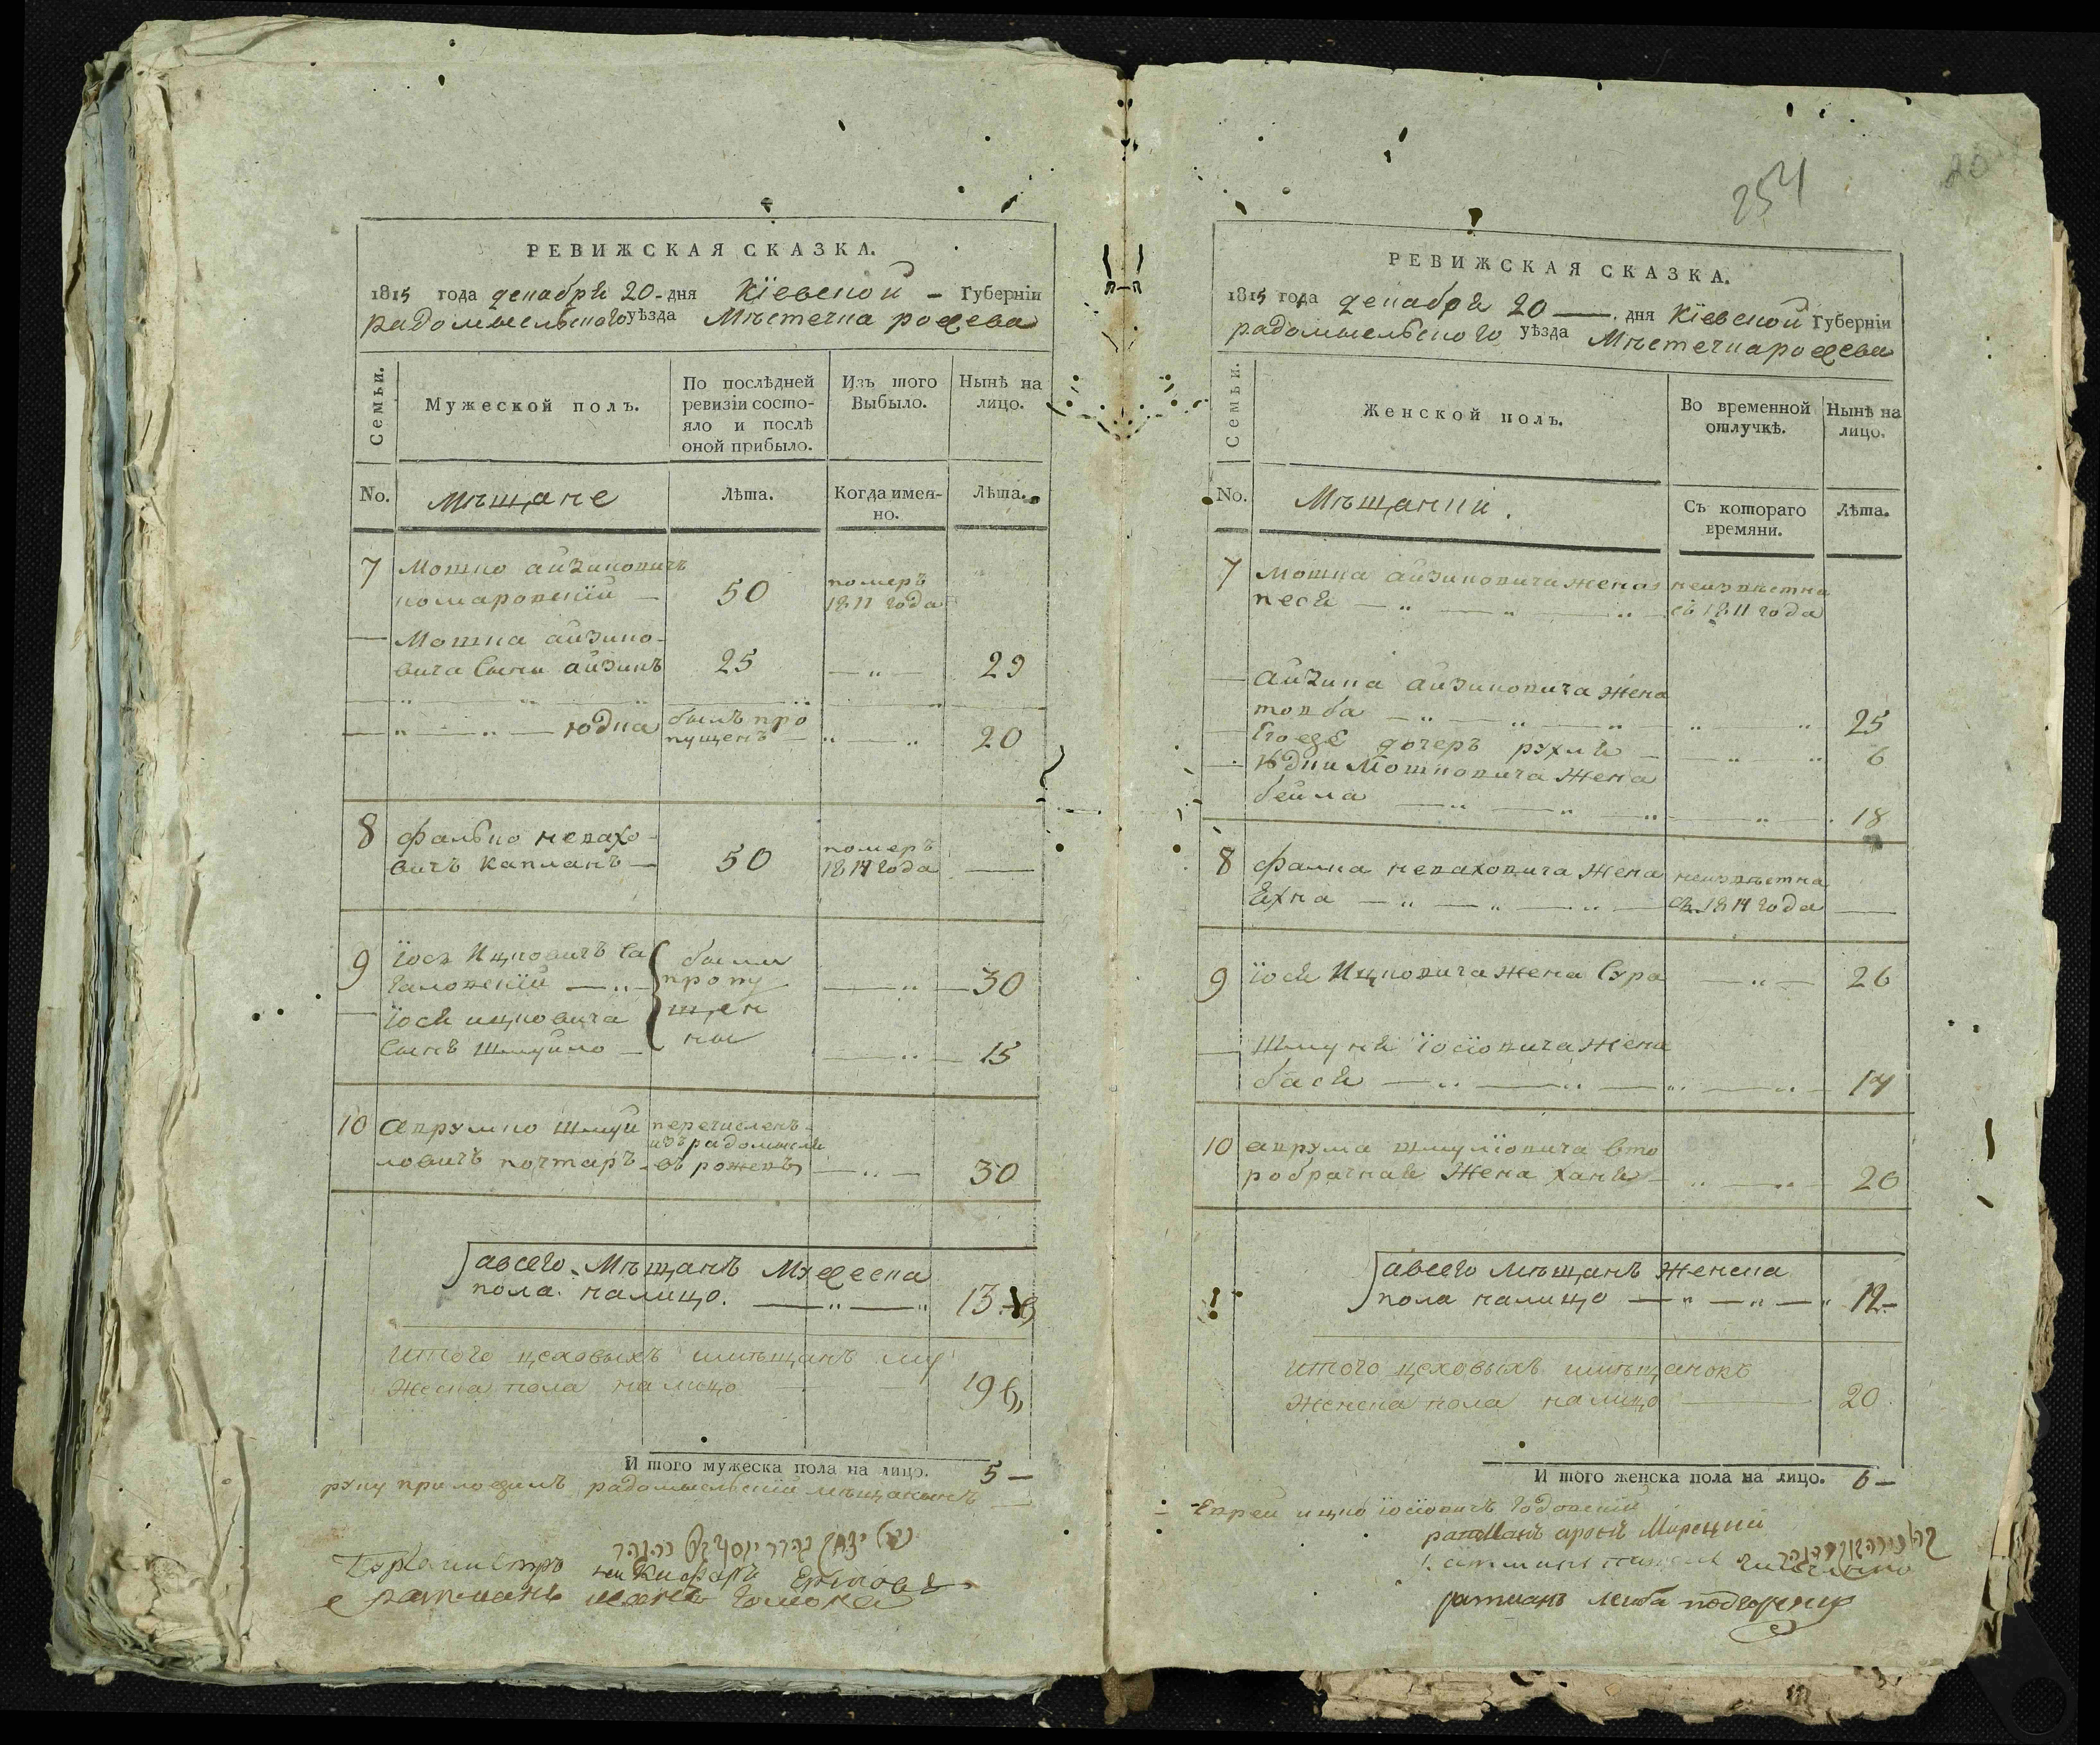 254
20
РЕВИЖСКАЯ СКАЗКА.
1815 года декабря 20 - дня Кїевской - Губернїи
радомысльского уѣзда Мѣстечка рожева
Семьи.
Мужеской полъ.
По послѣдней ревизїи состояло и послѣ оной прибыло.
Изъ того Выбыло.
Нынѣ на лицо.
No.
Мѣщане
Лѣта.
Когда имянно.
Лѣта.
7 Мошко айзиковичъ
комаровскїй — 50 померъ 1811 года
— Мошка айзико-
вича Сынъ айзикъ 25 — „ — 29
— „ — „ — юдка былъ про
пущенъ — „ — „ 20
8 фалько невахо-
вичъ капланъ — 50 померъ 1814 года —
9 їось Ицковичъ Са
галовскїй — „ — были пропущены — „ — 30
— їося ицковича
Сынъ Шмуйло — — „ — 15
10 аврумко шмуй перечисленъ
изъ радомысля
ловичъ почтаръ - въ рожевъ — „ — 30
авсего Мѣщанъ Мужеска
пола налицо. — „ — „ 13
итого цеховыхъ имѣщанъ му
жеска пола налицо — 19
И того мужеска пола на лицо. 5 —
руку приложилъ радомысльскїй мѣщанинъ
ратманъ
РЕВИЖСКАЯ СКАЗКА.
1815 года декабря 20 — дня Кїевской Губернїи
радомысльского уѣзда Мѣстечка рожева
Семьи.
Женской полъ.
Во временной отлучкѣ.
Нынѣ на лицо.
No.
Мѣщанки.
Съ котораго времяни.
Лѣта.
7 Мошка айзиковича жена неизвѣстна
песя — „ — „ — „ — съ 1811 года
— айзика айзиковича жена
товба — „ — „ — „ — „ — „ 25
— Егоже дочеръ рухля — — „ — „ 6
— юдки Мошковича жена
бейла — „ — „ — „ — „ — 18
8 фалка неваховича жена неизвѣстна
Ехна — „ — „ — „ — съ 1814 года —
9 їося Ицковича жена Сура — „ — 26
— Шмуля їосїовича жена
бася — „ — „ — „ — „ — 14
10 аврума шмулїовича вто
робрачная жена ханя — „ — „ — 26
авсего мѣщанъ женска
пола налицо — „ — „ — „ 12 -
итого цеховыхъ имѣщанокъ
женска пола налицо — 20
И того женска пола на лицо. 6 —
Еврей ицко їосїовичъ
ратманъ
ратманъ лейба